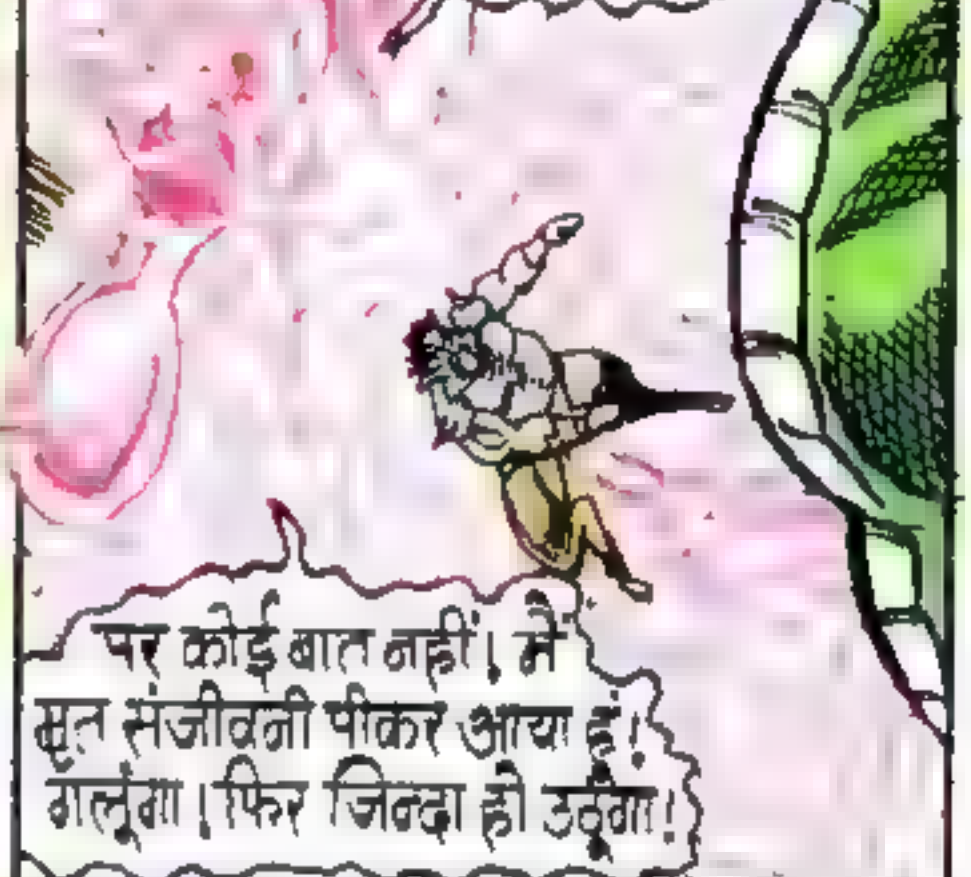 पर कोई बात नहीं। मैं
मृत संजीवनी पीकर आया हूं!
गलूंगा। फिर जिन्दा हो उठूंगा!